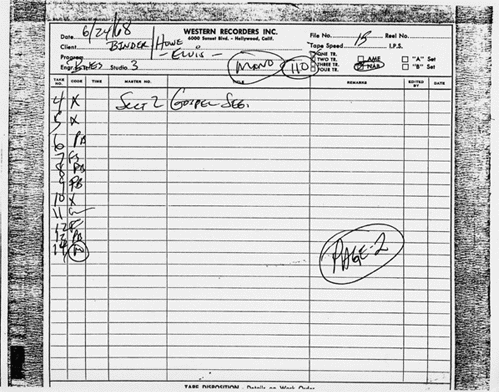 WESTERN RECORDERS INC.
6000 Sunset Blvd. - Hollywood, Calif.
Date 6/24/68
File No. Reel No.
Client BINDER/HOWE
Tape Speed 15 I.P.S.
- ELVIS -
Program
MONO 110
ONE TR.
TWO TR. AME "A" Set
THREE TR. NAB "B" Set
FOUR TR.
Engr. Studio 3
TAKE NO. CODE TIME MASTER NO. TITLE REMARKS EDITED BY DATE
4 X Sect 2 GOSPEL SEG.
5 X
6 PB
7 FS
8 PB
9 PB
10 X
11
12 F
13 PB
14
PAGE-2
TAPE DISPOSITION - Details on Work Order